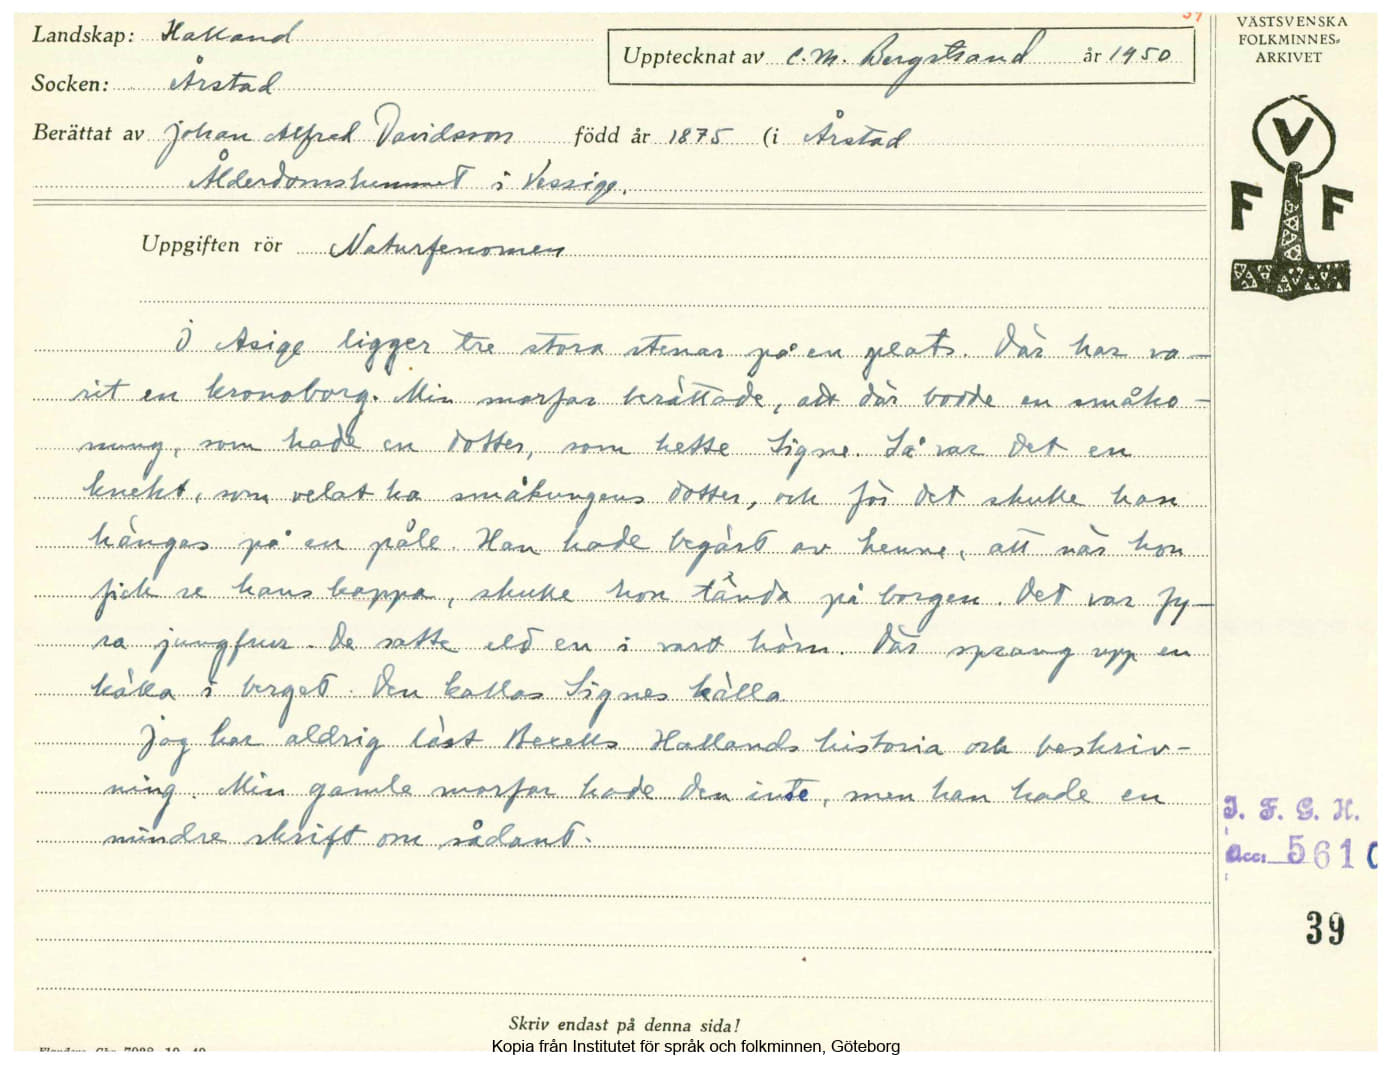 Landskap: Halland
Upptecknat av C. M. Bergstrand år 1950
Socken: Årstad
Berättat av Johan Alfred Davidsson född år 1875 (i Årstad
Ålderdomshemmet i Vessige.
Uppgiften rör Naturfenomen
I Asige ligger tre stora stenar på en plats. Där har va-
rit en kronoborg. Min morfar berättade, att där bodde en småko-
nung, som hade en dotter, som hette Signe. Så var det en
knekt, som velat ha småkungens dotter, och för det skulle han
hängas på en påle. Han hade begärt av henne, att när hon
fick se hans kappa, skulle hon tända på borgen. Det var fy-
ra jungfrur. De satte eld en i vart hörn. Där sprang upp en
källa i berget. Den kallas Signes källa
Jag har aldrig läst Bexells Hallands historia och beskriv-
ning. Min gamle morfar hade den inte, men han hade en
mindre skrift om sådant.
Skriv endast på denna sida!
Kopia från Institutet för språk och folkminnen, Göteborg
VÄSTSVENSKA
FOLKMINNES-
ARKIVET
V
F F
I. F. G. H.
Acc: 561
39